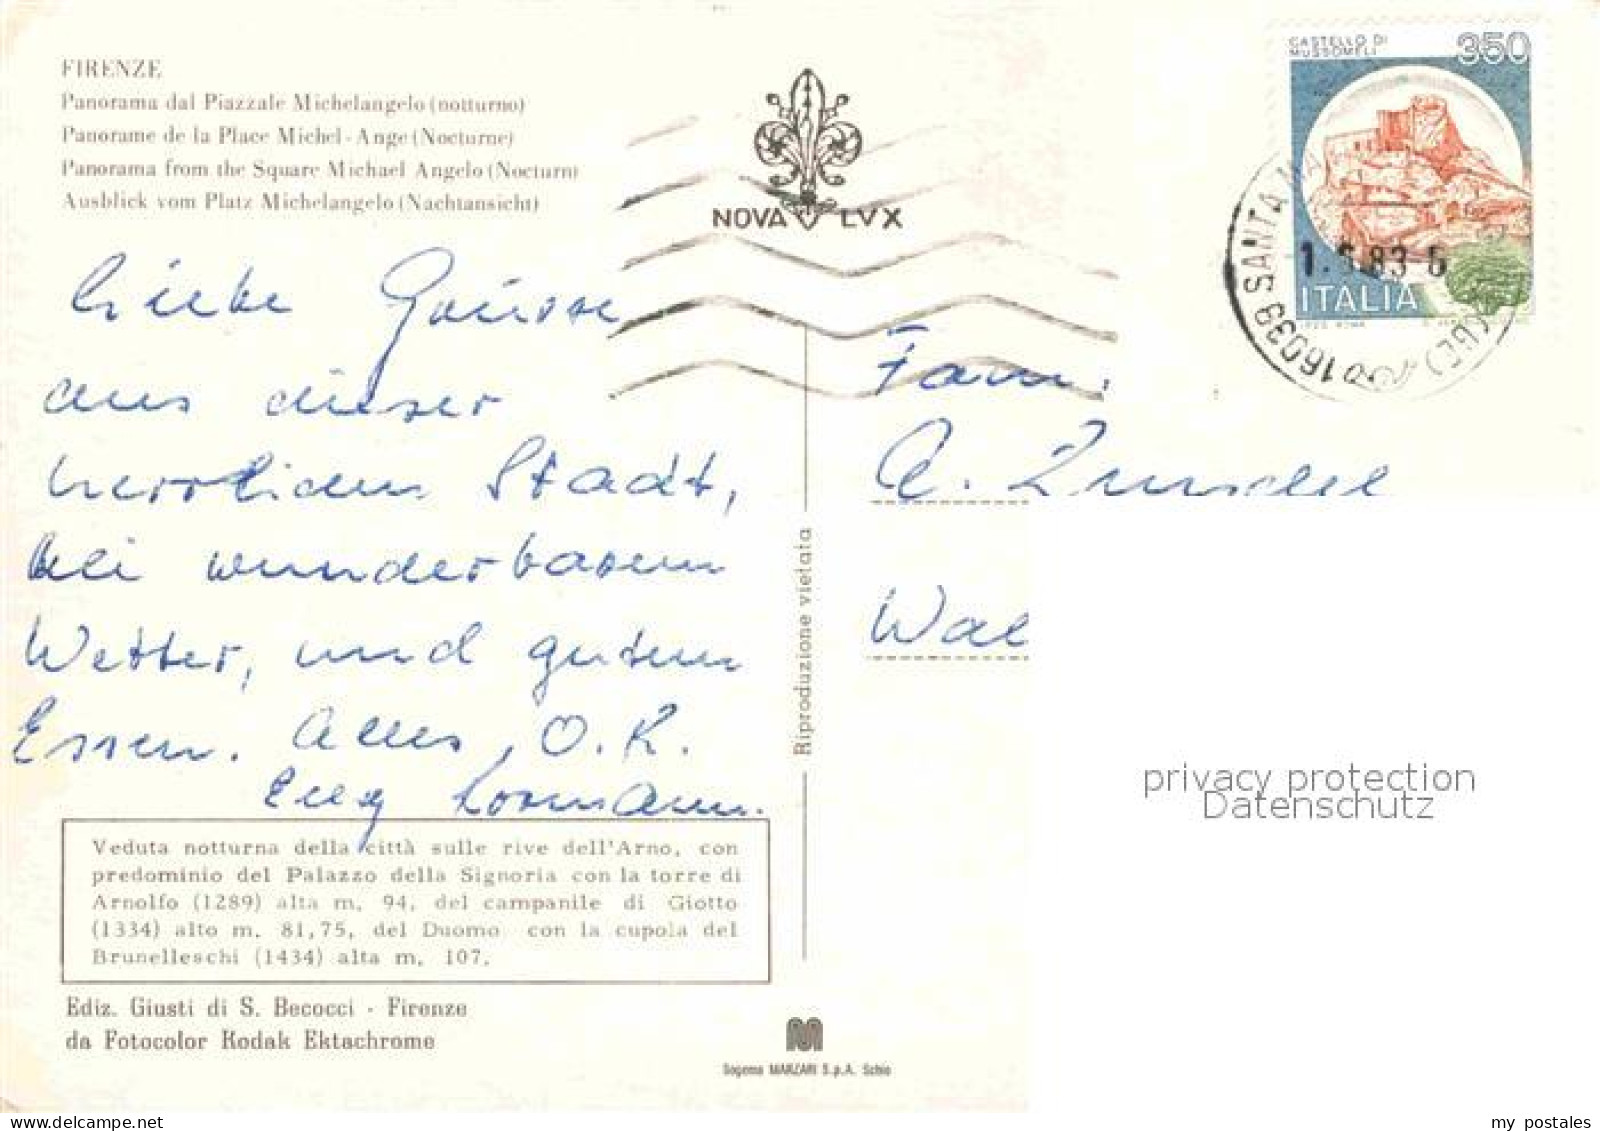 FIRENZE
Panorama dal Piazzale Michelangelo (notturno)
Panorame de la Place Michel-Ange (Nocturne)
Panorama from the Square Michael Angelo (Nocturn)
Ausblick vom Platz Michelangelo (Nachtansicht)
NOVA LVX
CASTELLO DI
MUSSOMELI
350
ITALIA
1.5.83-6
16038 SANTA MA
Liebe Grüsse
aus dieser
herrlichen Stadt,
bei wunderbarem
Wetter, und gutem
Essen. Alles O.K.
Fam.
Wal
Riproduzione vietata
Veduta notturna della città sulle rive dell'Arno, con
predominio del Palazzo della Signoria con la torre di
Arnolfo (1289) alta m. 94, del campanile di Giotto
(1334) alto m. 81,75, del Duomo con la cupola del
Brunelleschi (1434) alta m. 107.
Ediz. Giusti di S. Becocci - Firenze
da Fotocolor Kodak Ektachrome
Sogema MARZARI S.p.A. Schio
privacy protection
Datenschutz
my postales